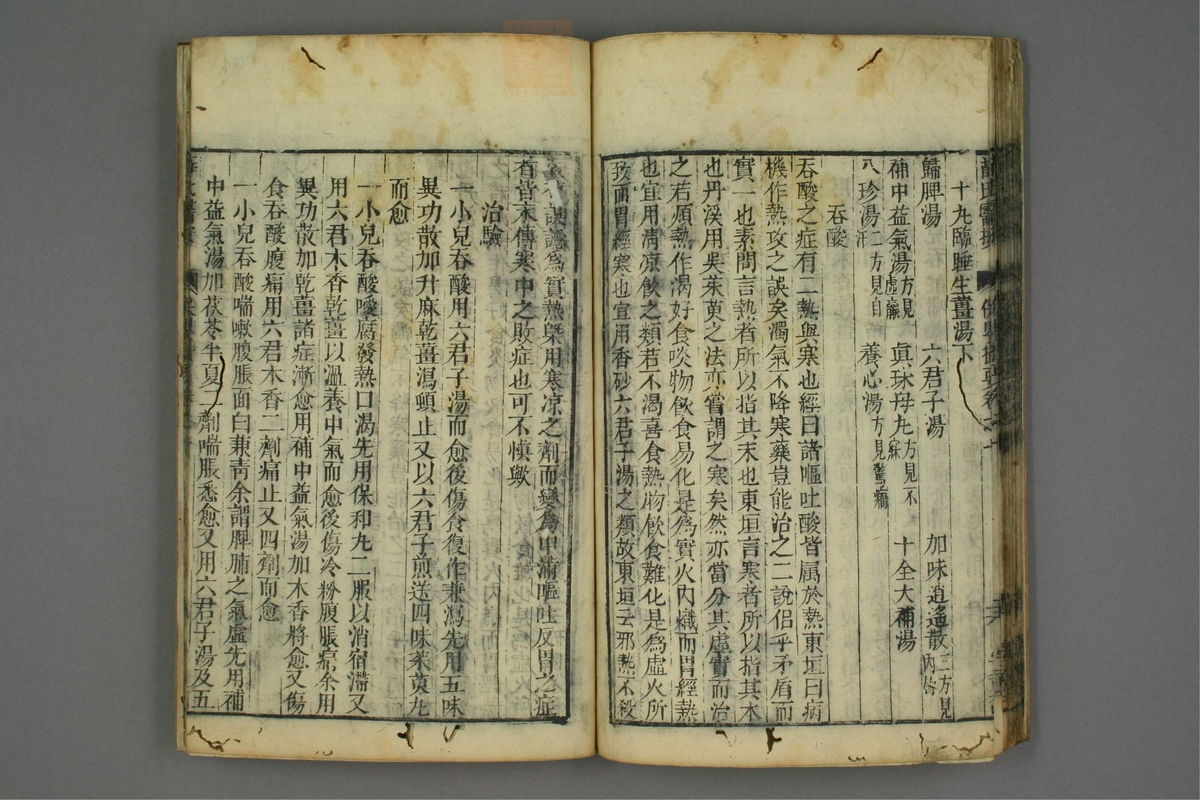 十九臨睡生薑湯下
歸脾湯 六君子湯 加味逍遙散二方見內
補中益氣湯方見虛羸 真珠母丸方見不寐 十全大補湯
八珍湯二方見自汗 養心湯方見驚癇
吞酸
吞酸之症有二熱與寒也經曰諸嘔吐酸皆属於熱東垣曰病
機作熱攻之誤矣濁氣不降寒藥豈能治之二說侣乎矛盾而
實一也素問言熱者所以指其末也東垣言寒者所以指其本
也丹溪用吳茱萸之法亦嘗謂之寒矣然亦當分其虛實而治
之若原熱作渴好食啖物飲食易化是為實火內熾而胃經熱
也宜用清凉飲之類若不渴喜食熱物飲食難化是為虛火所
致而胃經寒也宜用香砂六君子湯之類故東垣云邪熱不殺
誤認為實熱槩用寒凉之劑而變為中滿嘔吐反胃之症
者皆末傳寒中之敗症也可不慎歟
治驗
一小兒吞酸用六君子湯而愈後傷食復作兼瀉先用五味
異功散加升麻乾薑瀉頓止又以六君子煎送四味茱萸丸
而愈
一小兒吞酸噯腐發熱口渴先用保和丸二服以消宿滯又
用六君木香乾薑以溫養中氣而愈後傷冷粉腹脹痛余用
異功散加乾薑諸症漸愈用補中益氣湯加木香將愈又傷
食吞酸腹痛用六君木香二劑痛止又四劑而愈
一小兒吞酸喘嗽腹脹面白兼青余謂脾肺之氣虛先用補
中益氣湯加茯苓半夏二劑喘脹悉愈又用六君子湯及五